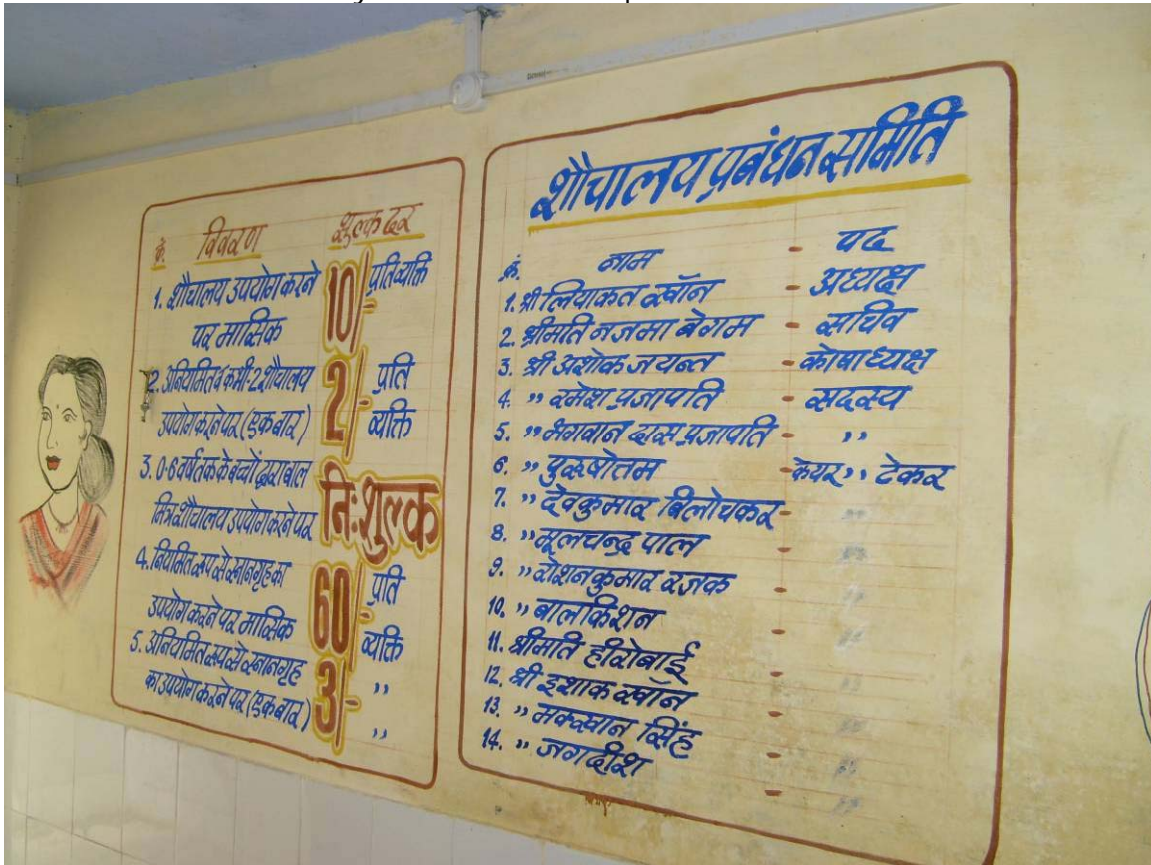 क्रं. विवरण शुल्क दर
1. शौचालय उपयोग करने 10/- प्रति व्यक्ति
पर मासिक
2. अनियमित व कभी-2 शौचालय 2/- प्रति
उपयोग करने पर (एक बार) व्यक्ति
3. 0-6 वर्ष तक के बच्चों द्वारा बाल
मित्र शौचालय उपयोग करने पर निःशुल्क
4. नियमित रूप से स्नानगृह का 60/- प्रति
उपयोग करने पर मासिक व्यक्ति
5. अनियमित रूप से स्नानगृह 3/- ,,
का उपयोग करने पर (एक बार) ,,
शौचालय प्रबंधन समिति
क्रं. नाम - पद
1. श्री लियाकत खॉन - अध्यक्ष
2. श्रीमति नजमा बेगम - सचिव
3. श्री अशोक जयन्त - कोषाध्यक्ष
4. ,, रमेश प्रजापति - सदस्य
5. ,, भगवान दास प्रजापति - ,,
6. ,, पुरूषोत्तम - केयर ,, टेकर
7. ,, देवकुमार बिलोचकर - ,,
8. ,, मूलचन्द्र पाल - ,,
9. ,, रोशन कुमार रजक - ,,
10. ,, बालकिशन - ,,
11. श्रीमति हीरोबाई - ,,
12. श्री इशाक खॉन - ,,
13. ,, मकखान सिंह - ,,
14. ,, जगदीश - ,,